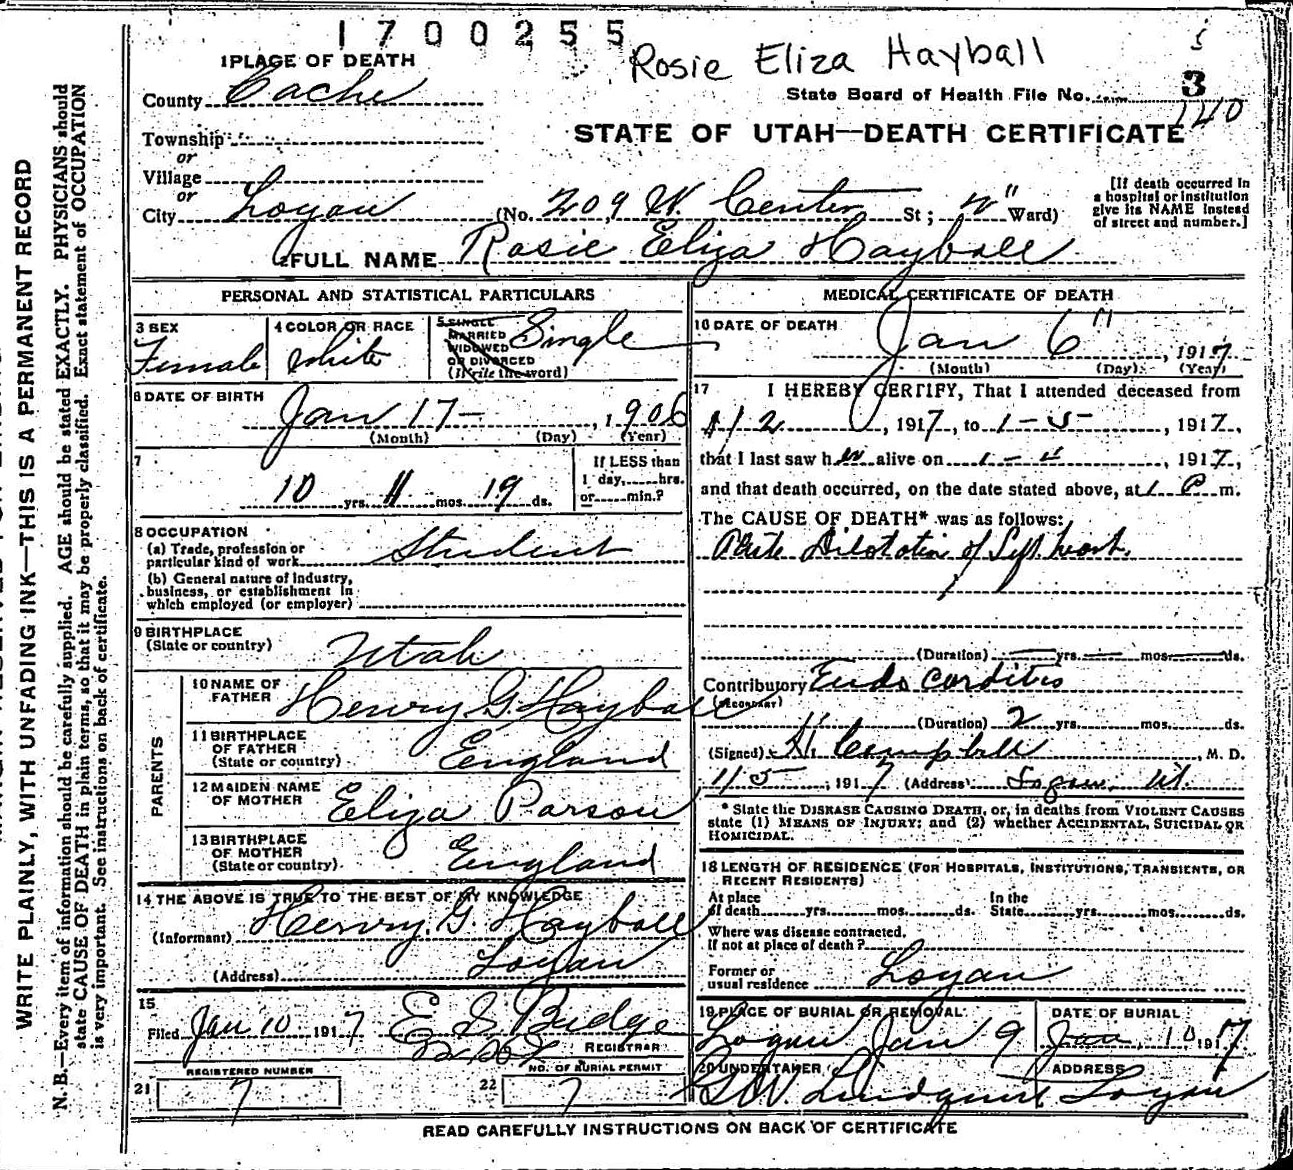 1700255
Rosie Eliza Hayball
3
State Board of Health File No. 140
STATE OF UTAH—DEATH CERTIFICATE
1 PLACE OF DEATH
County Cache
Township
or
Village
or
City Logan (No. 209 W. Center St; Ward)
[If death occurred in a hospital or institution give its NAME instead of street and number.]
2 FULL NAME Rosie Eliza Hayball
PERSONAL AND STATISTICAL PARTICULARS
3 SEX
Female
4 COLOR OR RACE
White
5 SINGLE MARRIED WIDOWED OR DIVORCED (Write the word)
Single
6 DATE OF BIRTH
Jan 17 - , 1906
(Month) (Day) (Year)
7
10 yrs. 11 mos. 19 ds.
If LESS than 1 day, hrs. or min.?
8 OCCUPATION
(a) Trade, profession or particular kind of work Student
(b) General nature of industry, business, or establishment in which employed (or employer)
9 BIRTHPLACE
(State or country) Utah
PARENTS
10 NAME OF FATHER Henry G. Hayball
11 BIRTHPLACE OF FATHER (State or country) England
12 MAIDEN NAME OF MOTHER Eliza Parson
13 BIRTHPLACE OF MOTHER (State or country) England
14 THE ABOVE IS TRUE TO THE BEST OF MY KNOWLEDGE
(Informant) Henry. G. Hayball
(Address) Logan
15
Filed Jan 10 1917 Budge
REGISTRAR
REGISTERED NUMBER
21 7
NO. OF BURIAL PERMIT
22 7
MEDICAL CERTIFICATE OF DEATH
16 DATE OF DEATH
Jan 6" , 1917
(Month) (Day) (Year)
17 I HEREBY CERTIFY, That I attended deceased from
1/2 , 1917, to 1-5- , 1917,
that I last saw her alive on , 1917,
and that death occurred, on the date stated above, at 1 P m.
The CAUSE OF DEATH* was as follows:
Acute Dilatation of Left heart.
(Duration) yrs. mos. ds.
Contributory Endo carditis
(SECONDARY)
(Duration) 2 yrs. mos. ds.
(Signed) Campbell , M. D.
1/5 , 1917 (Address) Logan, Ut.
* State the DISEASE CAUSING DEATH, or, in deaths from VIOLENT CAUSES state (1) MEANS OF INJURY; and (2) whether ACCIDENTAL, SUICIDAL OR HOMICIDAL.
18 LENGTH OF RESIDENCE (FOR HOSPITALS, INSTITUTIONS, TRANSIENTS, OR RECENT RESIDENTS)
At place of death yrs. mos. ds. In the State yrs. mos. ds.
Where was disease contracted, If not at place of death?
Former or usual residence Logan
19 PLACE OF BURIAL OR REMOVAL
Logan Jan 9
DATE OF BURIAL
Jan, 10 1917
20 UNDERTAKER
Lindquist
ADDRESS
Logan
READ CAREFULLY INSTRUCTIONS ON BACK OF CERTIFICATE
WRITE PLAINLY, WITH UNFADING INK—THIS IS A PERMANENT RECORD
N. B.—Every item of information should be carefully supplied. AGE should be stated EXACTLY. PHYSICIANS should
state CAUSE OF DEATH in plain terms, so that it may be properly classified. Exact statement of OCCUPATION
is very important. See instructions on back of certificate.